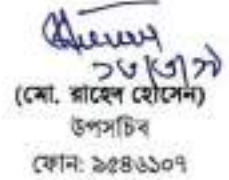 (মো. রাহেল হোসেন)
উপসচিব
ফোন: ৯৫৪৬১০৭